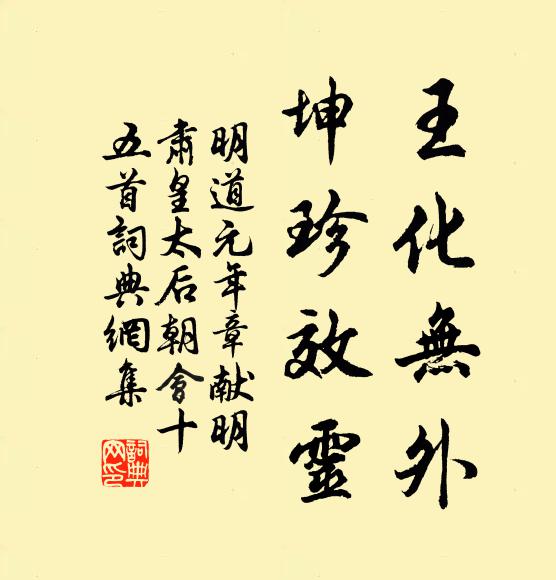 王化無外
坤珍效靈
明道元年章献明
肅皇太后朝會十
五首詞典網集
詞典
网印